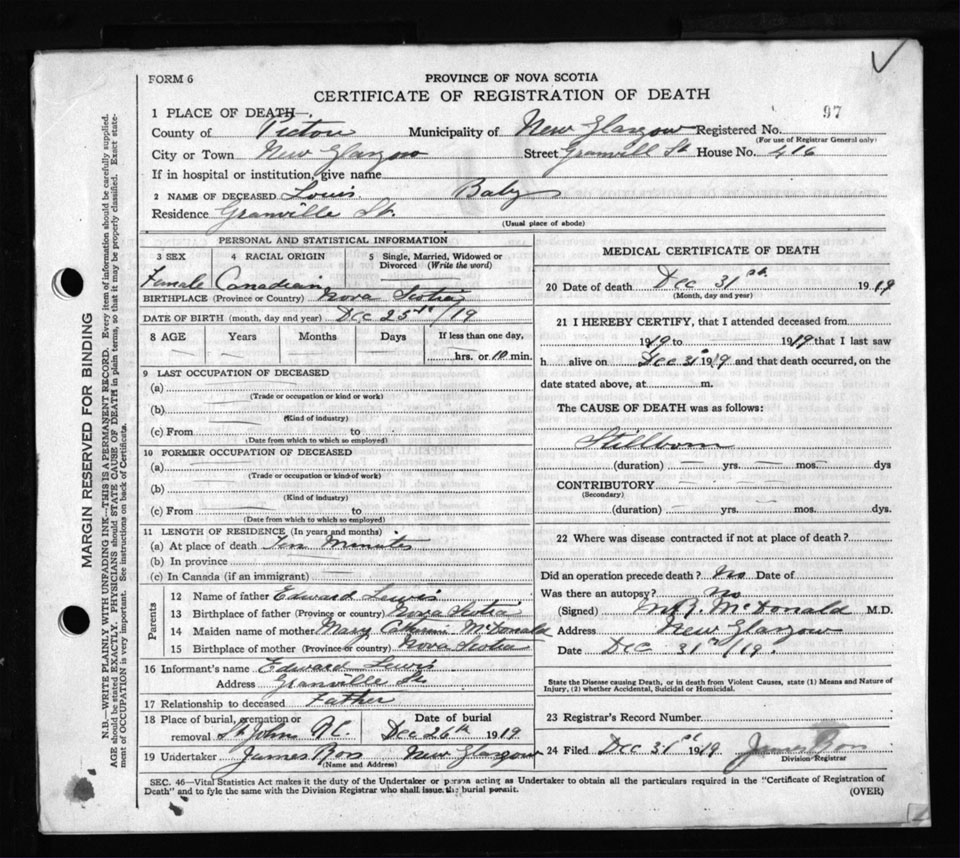 FORM 6
PROVINCE OF NOVA SCOTIA
CERTIFICATE OF REGISTRATION OF DEATH
1 PLACE OF DEATH—
97
County of Pictou Municipality of New Glasgow Registered No.
(For use of Registrar General only)
City or Town New Glasgow Street Granvill St House No. 416
If in hospital or institution, give name
2 NAME OF DECEASED Louis. Baby
Residence Granville St.
(Usual place of abode)
PERSONAL AND STATISTICAL INFORMATION
3 SEX 4 RACIAL ORIGIN 5 Single, Married, Widowed or Divorced (Write the word)
Female Canadian
BIRTHPLACE (Province or Country) Nova Scotia
DATE OF BIRTH (month, day and year) Dec 25th /19
8 AGE Years Months Days If less than one day,
hrs. or 10 min.
9 LAST OCCUPATION OF DECEASED
(a)
(Trade or occupation or kind or work)
(b)
(Kind of industry)
(c) From to
(Date from which to which so employed)
10 FORMER OCCUPATION OF DECEASED
(a)
(Trade or occupation or kind of work)
(b)
(Kind of industry)
(c) From to
(Date from which to which so employed)
11 LENGTH OF RESIDENCE (In years and months)
(a) At place of death Ten Minutes
(b) In province
(c) In Canada (if an immigrant)
Parents
12 Name of father Edward Lewis
13 Birthplace of father (Province or country) Nova Scotia
14 Maiden name of mother Mary McDonald
15 Birthplace of mother (Province or country) Nova Scotia
16 Informant's name Edward Lewis
Address Granville St.
17 Relationship to deceased Father
18 Place of burial, cremation or removal St John R.C. Date of burial Dec 26th 1919
19 Undertaker James Ross New Glasgow
(Name and Address)
MEDICAL CERTIFICATE OF DEATH
20 Date of death Dec 31st 1919
(Month, day and year)
21 I HEREBY CERTIFY, that I attended deceased from
1919 to 1919 that I last saw
h alive on Dec 31st 1919 and that death occurred, on the
date stated above, at m.
The CAUSE OF DEATH was as follows:
Stillborn
(duration) yrs. mos dys
CONTRIBUTORY
(Secondary)
(duration) yrs. mos. dys.
22 Where was disease contracted if not at place of death?
Did an operation precede death? No Date of
Was there an autopsy? No
(Signed) McDonald M.D.
Address New Glasgow
Date Dec 31st /19.
State the Disease causing Death, or in death from Violent Causes, state (1) Means and Nature of
Injury, (2) whether Accidental, Suicidal or Homicidal.
23 Registrar's Record Number
24 Filed Dec 31st 1919 James Ross
Division Registrar
SEC. 46—Vital Statistics Act makes it the duty of the Undertaker or person acting as Undertaker to obtain all the particulars required in the "Certificate of Registration of
Death" and to fyle the same with the Division Registrar who shall issue the burial permit.
(OVER)
MARGIN RESERVED FOR BINDING
N.B.—WRITE PLAINLY WITH UNFADING INK—THIS IS A PERMANENT RECORD. Every item of information should be carefully supplied.
AGE should be stated EXACTLY. PHYSICIANS should STATE CAUSE OF DEATH in plain terms, so that it may be properly classified. Exact state-
ment of OCCUPATION is very important. See instructions on back of Certificate.